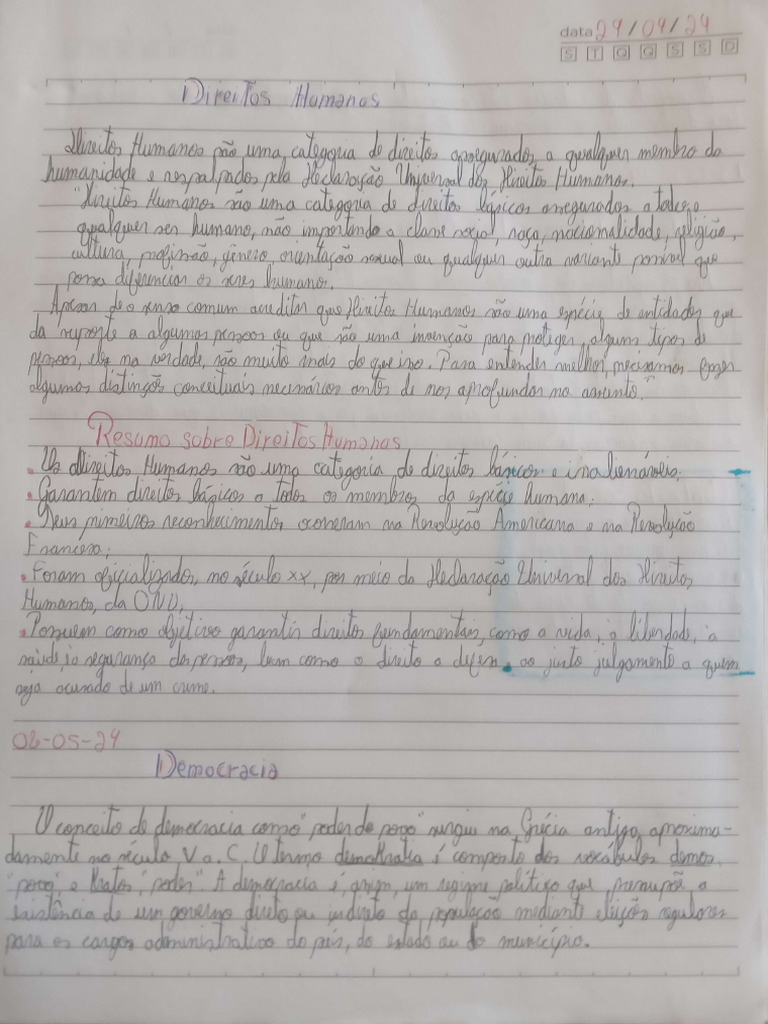 data 29/04/24
S T Q Q S S D
Direitos Humanos
Direitos Humanos são uma categoria de direitos assegurados a qualquer membro da
humanidade e respalpados pela Declaração Universal dos Direitos Humanos.
"Direitos Humanos são uma categoria de direitos básicos assegurados a todo e
qualquer ser humano, não importando a classe social, raça, nacionalidade, religião,
cultura, profissão, gênero, orientação sexual ou qualquer outra variante possível que
possa diferenciar os seres humano.
Apesar de o senso comum acreditar que Direitos Humanos são uma espécie de entidades que
da suporte a algumas pessoas ou que são uma invenção para proteger, alguns tipos de
pessoas, eles na verdade, são muito mais do que isso. Para entender melhor, precisamos fazer
algumas distinções conceituais necessárias antes de nos aprofundar no assunto."
Resumo sobre Direitos Humanos
• Os Direitos Humanos são uma categoria de direitos básicos e inalienáveis;
• Garantem direitos básicos a todos os membros da espécie humana;
• Seus primeiros reconhecimentos ocorreram na Revolução Americana e na Revolução
Francesa;
• Foram oficializados, no século XX, por meio da Declaração Universal dos Direitos
Humanos, da ONU;
• Possuem como objetivo garantir direitos fundamentais, como a vida, à liberdade, à
saúde, à segurança das pessoas, bem como o direito a defesa ao justo julgamento a quem
seja acusado de um crime.
08-05-24
Democracia
O conceito de democracia como "poder do povo" surgiu na Grécia antiga, aproxima-
damente no século V a.C. O termo demokratia é composto dos vocábulos demos,
"povo", e Kratos, "poder". A democracia é, assim, um regime político que pressupõe a
existência de um governo direto ou indireto da população mediante eleições regulares
para os cargos administrativo do país, do estado ou do município.